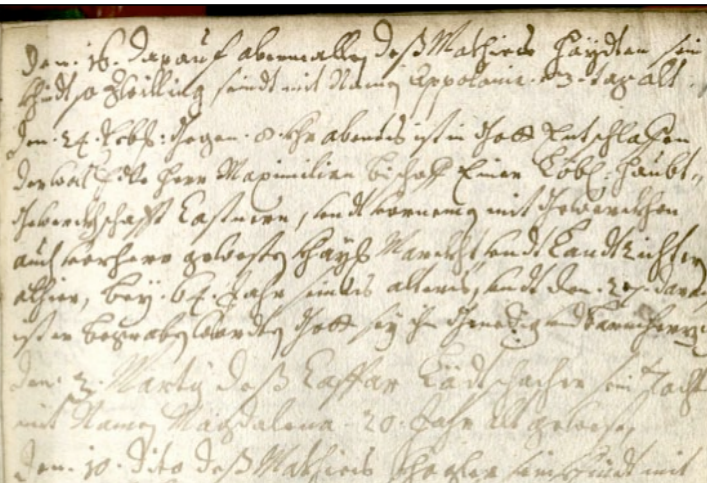 Den. 16. darauf abermalln deß Mathiess Haydten sein
Khindt so Zwilling seindt mit Namen Appolonia. 3. tag alt
Den. 24. Feb: Gegen. 8. Uhr abents ist in Gott Entschlaffen
der woll Edle Herr Maximilian Bischoff Einer Löbl: Haubt-
Gewerckhschafft Cassierer, undt vornemer mit Gewerckhen
auch vorhero gewester Marckht undt Landt Richter
alhier, bey. 64. Jahr seines alters, undt den. 27. darauf
ist er begraben worden Gott sey ihm Genedig und Barmherzig
Den. 2. Marty deß Casspar sein Tochter
mit Namen Magdalena. 20. Jahr alt gewesen
Den. 10. dito deß Mathiess sein Khindt mit